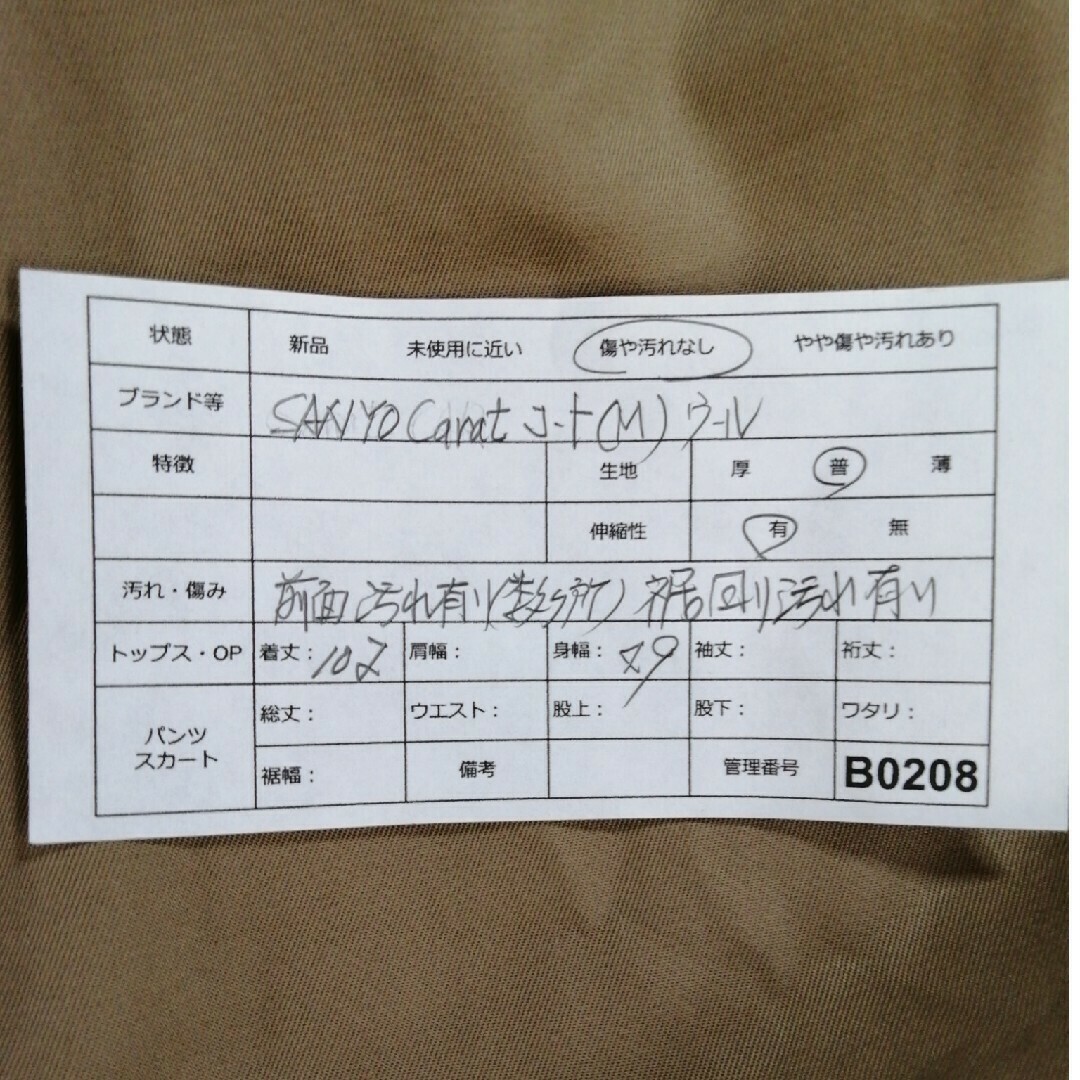 状態 新品 未使用に近い 傷や汚れなし やや傷や汚れあり
ブランド等 SANYO Carat コート(M) ウール
特徴 生地 厚 普 薄
伸縮性 有 無
汚れ・傷み 前面汚れ有り(数ヶ所) 裾回り汚れ有り
トップス・OP 着丈：102 肩幅： 身幅： 袖丈： 裄丈：
パンツ スカート 総丈： ウエスト： 股上： 股下： ワタリ：
裾幅： 備考 管理番号 B0208